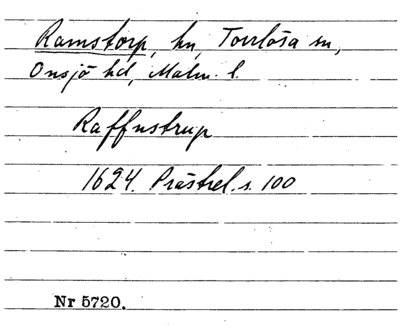 Ramstorp, hn, Torrlösa sn,
Onsjö hd, Malm. l.
Raffnstrup
1624. Prästrel. s. 100
Nr 5720.